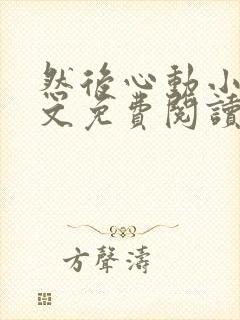 然後心動小
文免費閱讀
方聲濤